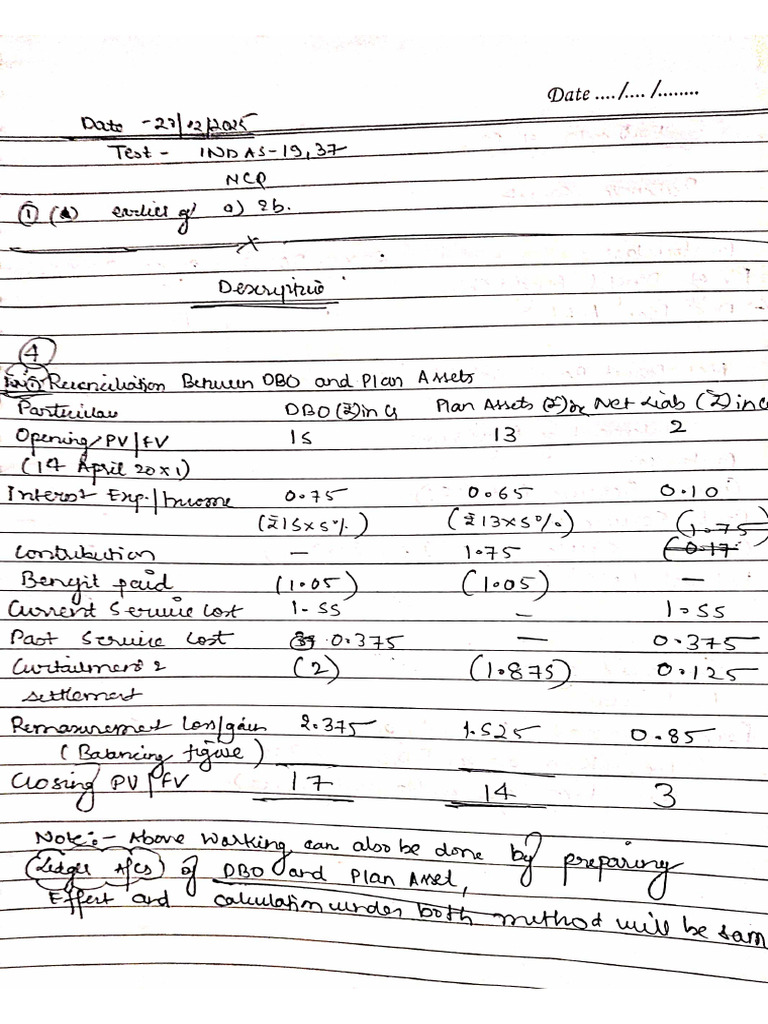 Date ..../..../........
Date - 27/12/2025
Test - INDAS-19,37
MCQ
① (A) earlier of a) 2b.
x
Descriptive
4
Reconciliation Between DBO and Plan Assets
Particular DBO (₹) in Cr Plan Assets (₹) Net Liab (₹) in Cr
Opening PV/FV 15 13 2
(1st April 20x1)
Interest Exp./Income 0.75 0.65 0.10
(₹15x5%) (₹13x5%) (1.75)
Contribution — 1.75 (0.17
Benefit paid (1.05) (1.05) —
Current Service Cost 1.55 — 1.55
Past Service Cost 0.375 — 0.375
Curtailment & (2) (1.875) 0.125
settlement
Remasurement Loss/gain 2.375 1.525 0.85
(Balancing figure)
Closing PV/FV 17 14 3
Note:- Above working can also be done by preparing
Ledger A/cs of DBO and Plan Asset,
Effect and calculation under both method will be sam